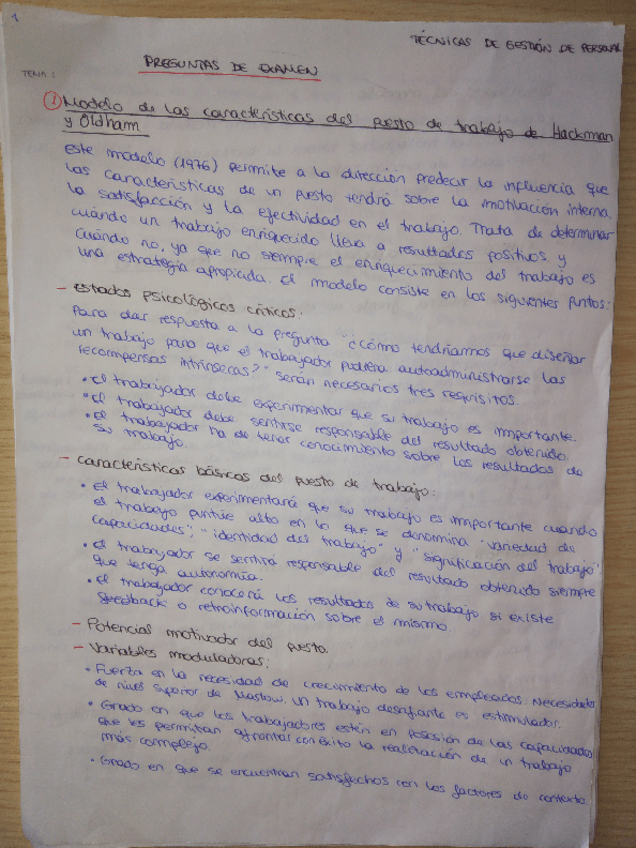 1
TÉCNICAS DE GESTIÓN DE PERSONAL
PREGUNTAS DE EXAMEN
TEMA:
① Modelo de las características del puesto de trabajo de Hackman
y Oldham
Este modelo (1976) permite a la dirección predecir la influencia que
las características de un puesto tendrá sobre la motivación interna,
la satisfacción y la efectividad en el trabajo. Trata de determinar
cuándo un trabajo enriquecido lleva a resultados positivos y
cuándo no, ya que no siempre el enriquecimiento del trabajo es
una estrategia apropiada. El modelo consiste en los siguientes puntos:
- Estados psicológicos críticos:
Para dar respuesta a la pregunta "¿Cómo tendríamos que diseñar
un trabajo para que el trabajador pudiera autoadministrarse las
recompensas intrínsecas?" serán necesarios tres requisitos.
• El trabajador debe experimentar que su trabajo es importante.
• El trabajador debe sentirse responsable del resultado obtenido.
• El trabajador ha de tener conocimiento sobre los resultados de
su trabajo.
- Características básicas del puesto de trabajo:
• El trabajador experimentará que su trabajo es importante cuando
el trabajo puntúe alto en lo que se denomina "variedad de
capacidades", "identidad del trabajo" y "significación del trabajo"
• El trabajador se sentirá responsable del resultado obtenido siempre
que tenga autonomía.
• El trabajador conocerá los resultados de su trabajo si existe
feedback o retroinformación sobre el mismo.
- Potencial motivador del puesto.
- Variables moduladoras:
• Fuerza en la necesidad de crecimiento de los empleados. Necesidades
de nivel superior de Maslow. Un trabajo desafiante es estimulador.
• Grado en que los trabajadores estén en posesión de las capacidades
que les permitan afrontar con éxito la realización de un trabajo
más complejo.
• Grado en que se encuentran satisfechos con los factores de contexto.